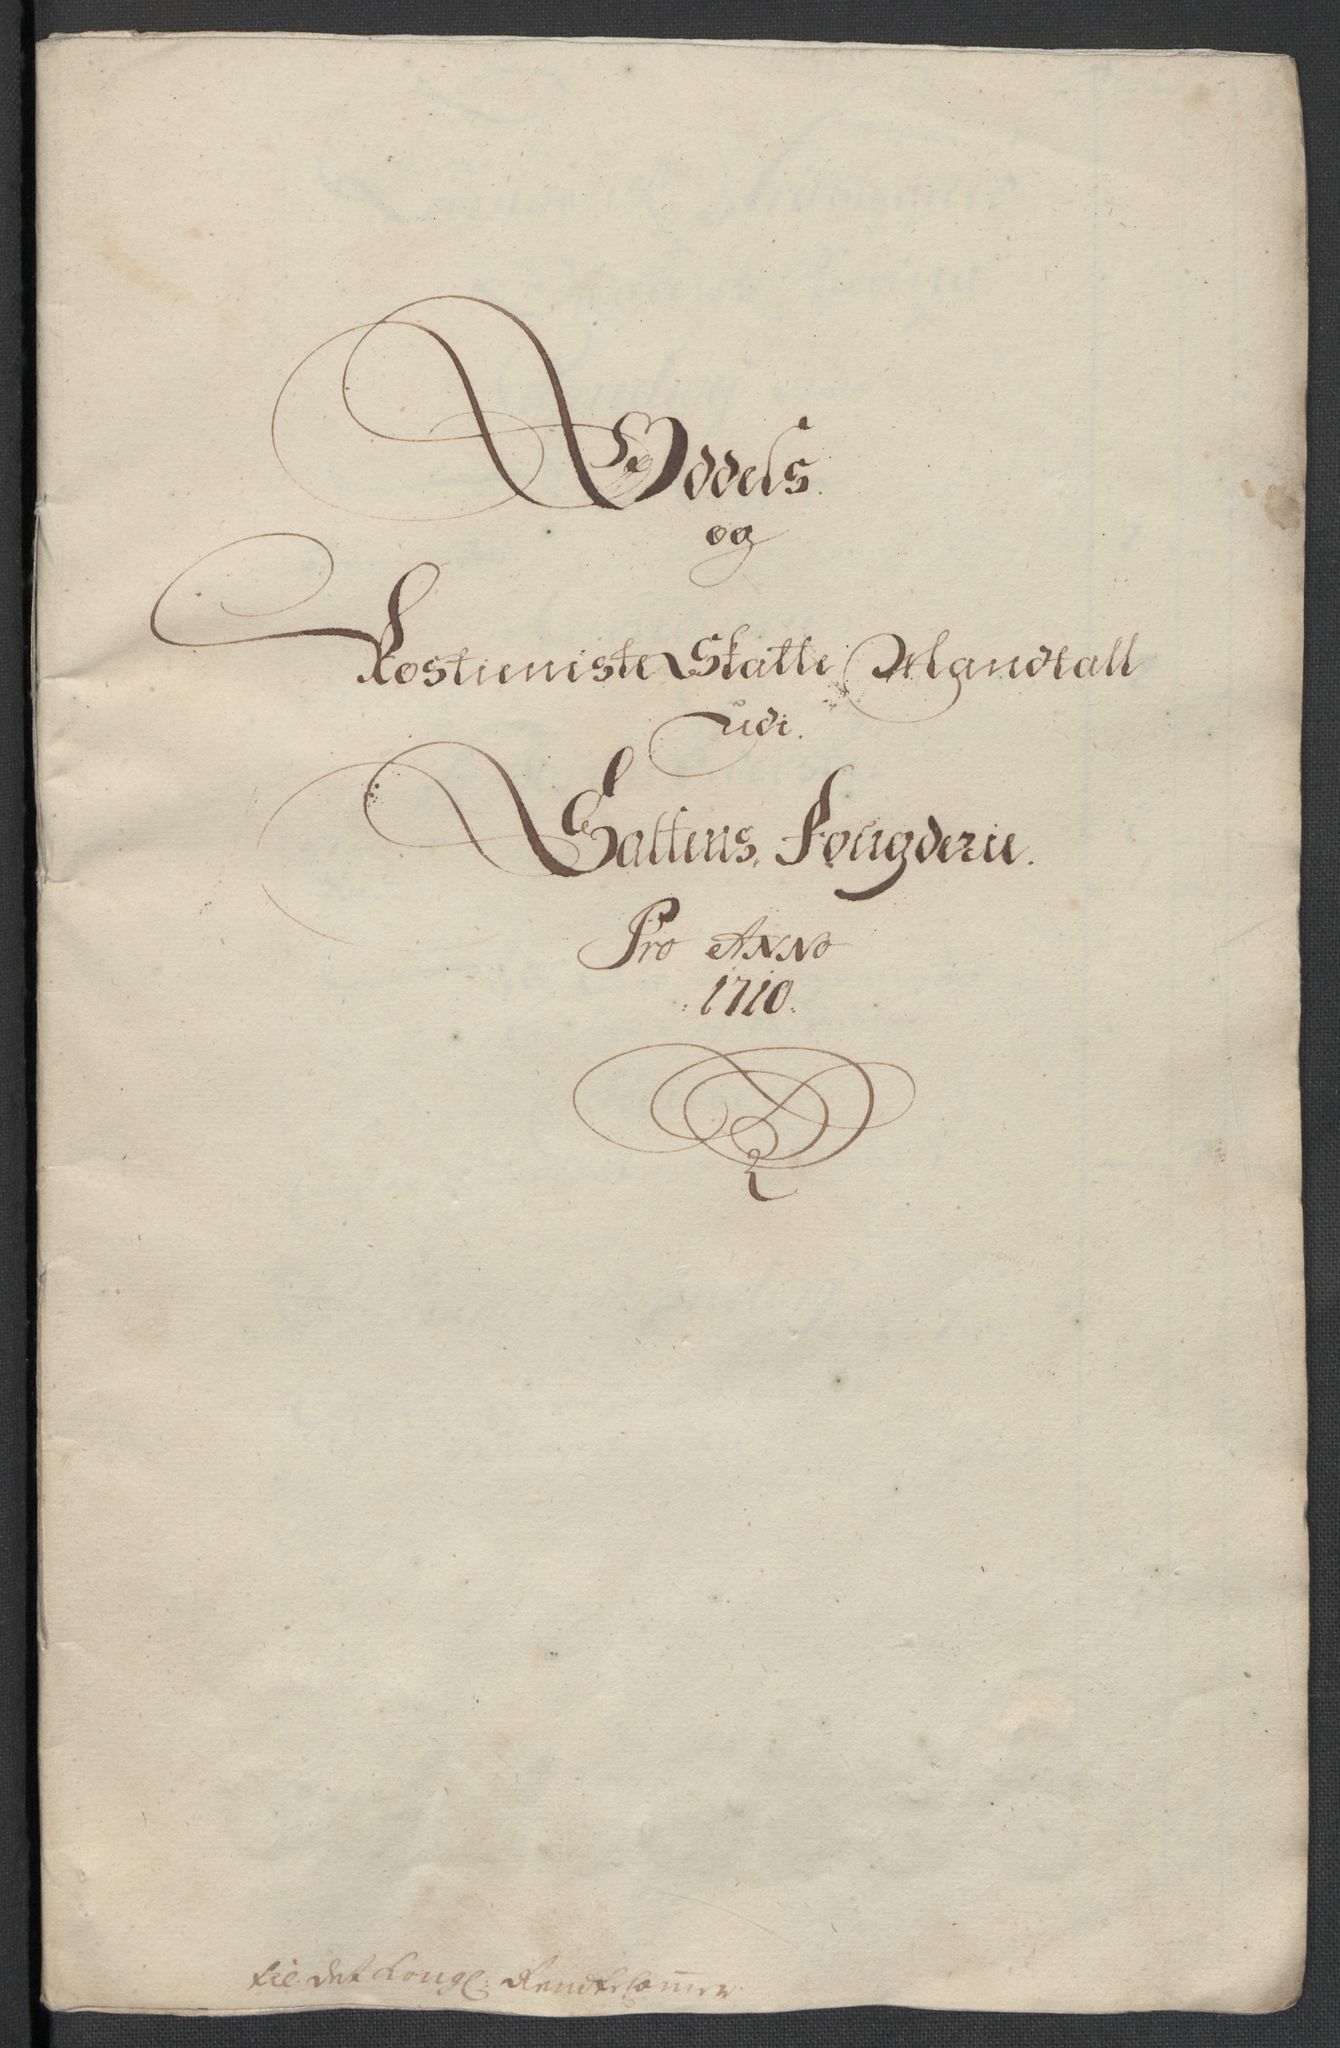 Oddels
og
Rostieniste Skatte Mandtall
udi.
Saltens Fougderie.
Pro ANNo
1710.
til det Kongl: Rendtecammer